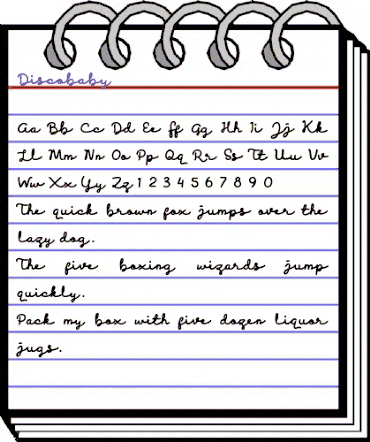 Discobaby
Aa Bb Cc Dd Ee Ff Gg Hh Ii Jj Kk
Ll Mm Nn Oo Pp Qq Rr Ss Tt Uu Vv
Ww Xx Yy Zz 1 2 3 4 5 6 7 8 9 0
The quick brown fox jumps over the
lazy dog.
The five boxing wizards jump
quickly.
Pack my box with five dozen liquor
jugs.